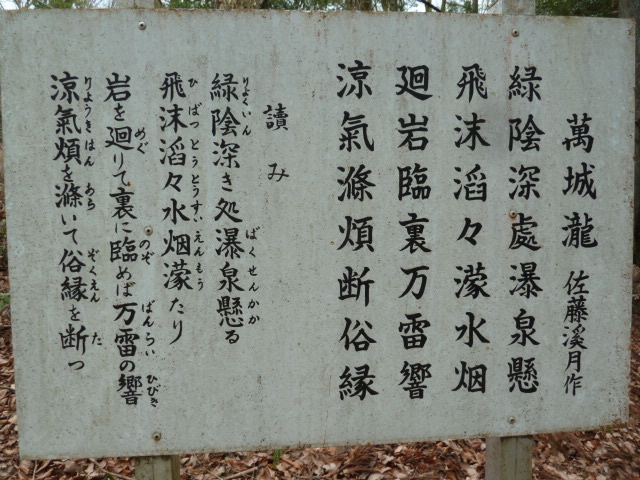 萬城瀧 佐藤溪月作
緑陰深處瀑泉懸
飛沫滔々濛水烟
廻岩臨裏万雷響
涼氣滌煩断俗縁
讀み
緑陰深き処瀑泉懸る
りょくいん ばくせんかか
飛沫滔々水烟濛たり
ひばつとうとうすいえんもう
岩を廻りて裏に臨めば万雷の響
めぐ のぞ ばんらい ひびき
涼氣煩を滌いて俗縁を断つ
りょうきはん あら ぞくえん た